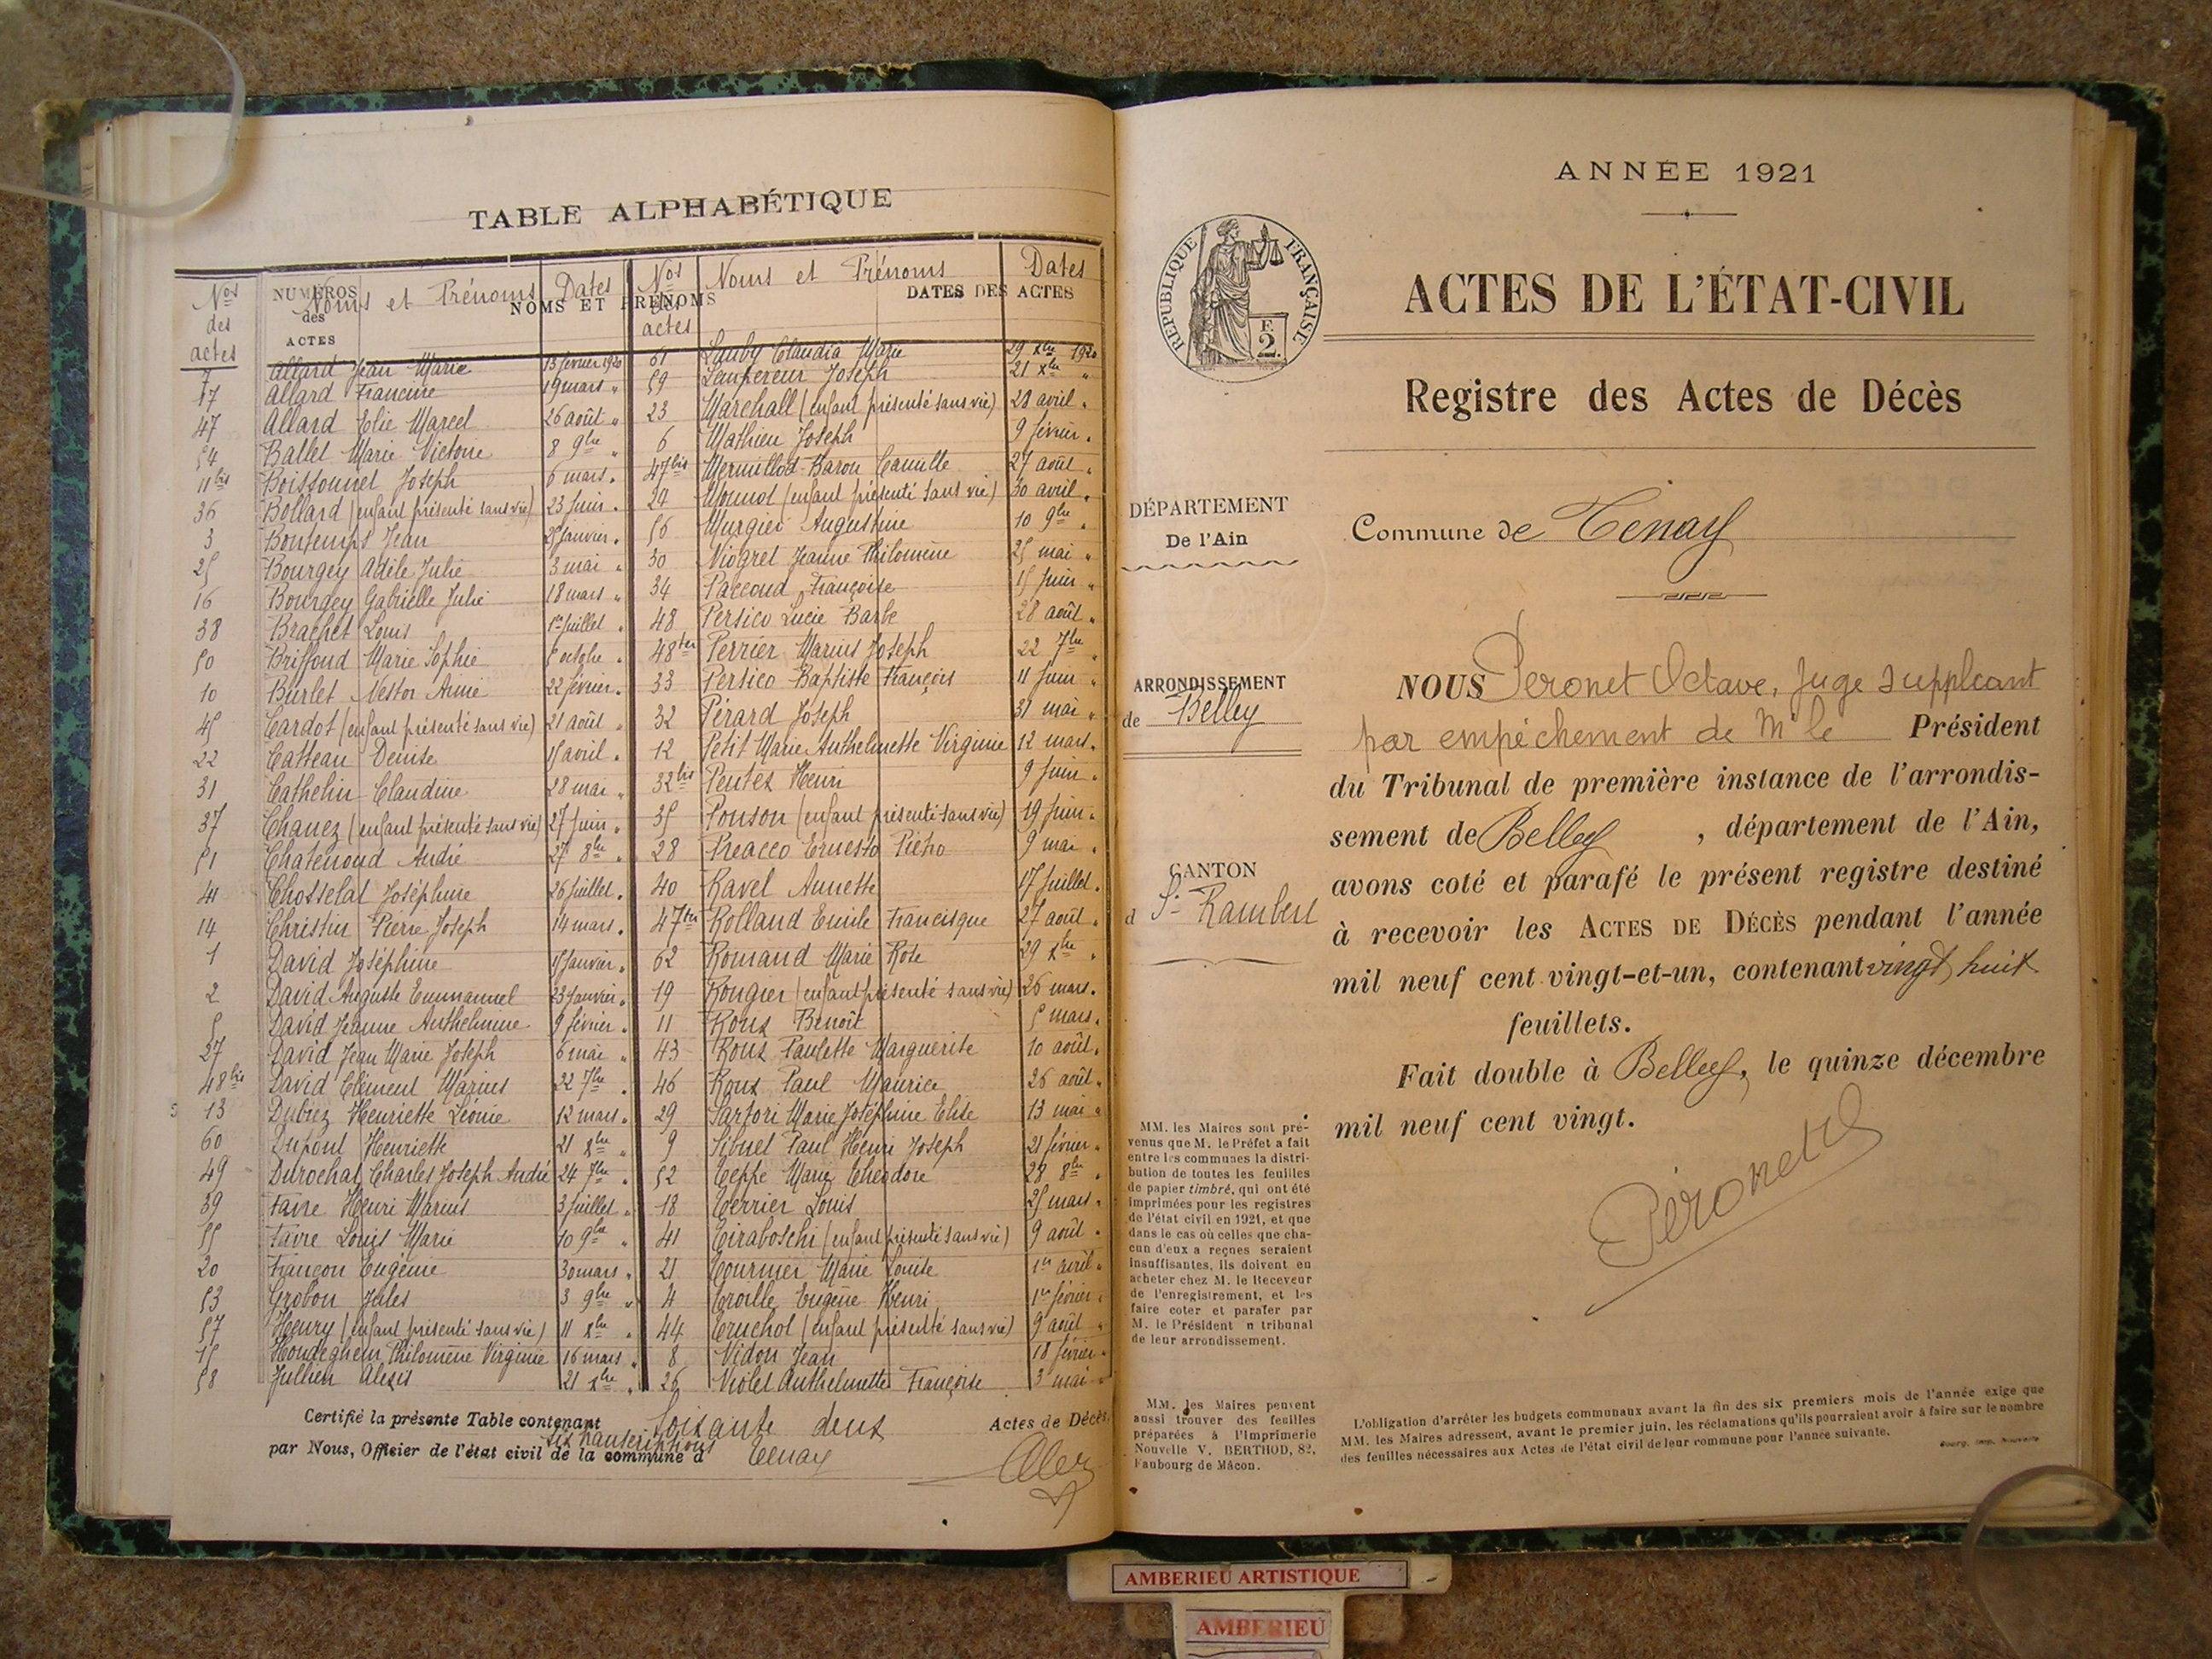 TABLE ALPHABÉTIQUE
Nos des actes Noms et Prénoms Dates Nos des actes Noms et Prénoms Dates
NUMÉROS des ACTES NOMS ET PRÉNOMS DATES DES ACTES
7 Allard Jean Marie 13 février 1920
17 Allard Francine 19 mars "
47 Allard Elie Marcel 26 août "
54 Ballet Marie Victoire 8 9bre "
11bis Boissonnet Joseph 6 mars "
36 Bollard (enfant présenté sans vie) 23 Juin "
3 Bontemps Jean 25 Janvier "
25 Bourgey Adèle Julie 3 mai "
16 Bourgey Gabrielle Julie 18 mars "
38 Brachet Louis 1er Juillet "
50 Briffoud Marie Sophie 5 octobre "
10 Burlet Nestor Aimé 22 février "
45 Cardot (enfant présenté sans vie) 21 août "
22 Catteau Denise 15 avril "
31 Cathelin Claudine 28 mai "
37 Chanez (enfant présenté sans vie) 27 Juin "
51 Chatenoud André 27 8bre "
41 Chosselat Joséphine 26 Juillet "
14 Christin Pierre Joseph 14 mars "
1 David Joséphine 15 Janvier "
2 David Auguste Emmanuel 23 Janvier "
5 David Jeanne Anthelmine 9 février "
27 David Jean Marie Joseph 6 mai "
48bis David Clément Marius 22 7bre "
13 Dubiez Henriette Léonie 12 mars "
60 Dupont Henriette 21 Xbre "
49 Durochat Charles Joseph André 24 7bre "
39 Favre Henri Marius 3 Juillet "
55 Favre Louis Marie 10 9bre "
20 Françon Eugénie 30 mars "
53 Grobon Jules 3 9bre "
57 Henry (enfant présenté sans vie) 11 Xbre "
15 Hondeghem Philomène Virginie 16 mars "
58 Jullien Alexis 21 Xbre "
61 Lauby Claudia Marie 29 Xbre 1920
59 Lempereur Joseph 21 Xbre "
23 Marchall (enfant présenté sans vie) 28 avril "
6 Mathieu Joseph 9 février "
47bis Mermillod-Baron Camille 27 août "
24 Monnot (enfant présenté sans vie) 30 avril "
56 Murgier Augustine 10 9bre "
30 Niogret Jeanne Philomène 25 mai "
34 Paccoud Françoise 15 Juin "
48 Persico Lucie Barbe 28 août "
48ter Perrier Marius Joseph 22 7bre "
33 Persico Baptiste François 11 Juin "
32 Pérard Joseph 31 mai "
12 Petit Marie Anthelmette Virginie 12 mars "
32bis Pentez Henri 9 Juin "
35 Ponson (enfant présenté sans vie) 19 Juin "
28 Preacco Ernesto Piétro 9 mai "
40 Ravel Annette 17 Juillet "
47ter Rolland Emile Francisque 27 août "
62 Romand Marie Rose 29 Xbre "
19 Rougier (enfant présenté sans vie) 26 mars "
11 Roux Benoît 5 mars "
43 Roux Paulette Marguerite 10 août "
46 Roux Paul Maurice 26 août "
29 Sartori Marie Joséphine Elise 13 mai "
9 Sibuet Paul Henri Joseph 21 février "
52 Teppe Marie Théodore 28 8bre "
18 Terrier Louis 25 mars "
41 Tiraboschi (enfant présenté sans vie) 9 août "
21 Tournier Marie Louise 1er avril "
4 Troille Eugène Henri 1er février "
44 Truchot (enfant présenté sans vie) 9 août "
8 Vidon Jean 18 février "
26 Violet Anthelmette Françoise 3 mai "
Certifié la présente Table contenant soixante deux Actes de Décès
six transcriptions
par Nous, Officier de l'état civil de la commune d Tenay
ANNÉE 1921
RÉPUBLIQUE FRANÇAISE
F.
2.
ACTES DE L'ÉTAT-CIVIL
Registre des Actes de Décès
DÉPARTEMENT
De l'Ain
ARRONDISSEMENT
de Belley
CANTON
d St Rambert
MM. les Maires sont pré-
venus que M. le Préfet a fait
entre les communes la distri-
bution de toutes les feuilles
de papier timbré, qui ont été
imprimées pour les registres
de l'état civil en 1921, et que
dans le cas où celles que cha-
cun d'eux a reçues seraient
insuffisantes, ils doivent en
acheter chez M. le Receveur
de l'enregistrement, et les
faire coter et parafer par
M. le Président n tribunal
de leur arrondissement.
MM. les Maires peuvent
aussi trouver des feuilles
préparées à l'Imprimerie
Nouvelle V. BERTHOD, 82,
Faubourg de Mâcon.
Commune de Tenay
NOUS Peronet Octave, Juge suppleant
par empéchement de Mr le Président
du Tribunal de première instance de l'arrondis-
sement de Belley , département de l'Ain,
avons coté et parafé le présent registre destiné
à recevoir les ACTES DE DÉCÈS pendant l'année
mil neuf cent vingt-et-un, contenant vingt huit
feuillets.
Fait double à Belley, le quinze décembre
mil neuf cent vingt.
Péronet
L'obligation d'arrêter les budgets communaux avant la fin des six premiers mois de l'année exige que
MM. les Maires adressent, avant le premier juin, les réclamations qu'ils pourraient avoir à faire sur le nombre
des feuilles nécessaires aux Actes de l'état civil de leur commune pour l'année suivante.
Bourg, Imp. Nouvelle
AMBERIEU ARTISTIQUE
AMBERIEU